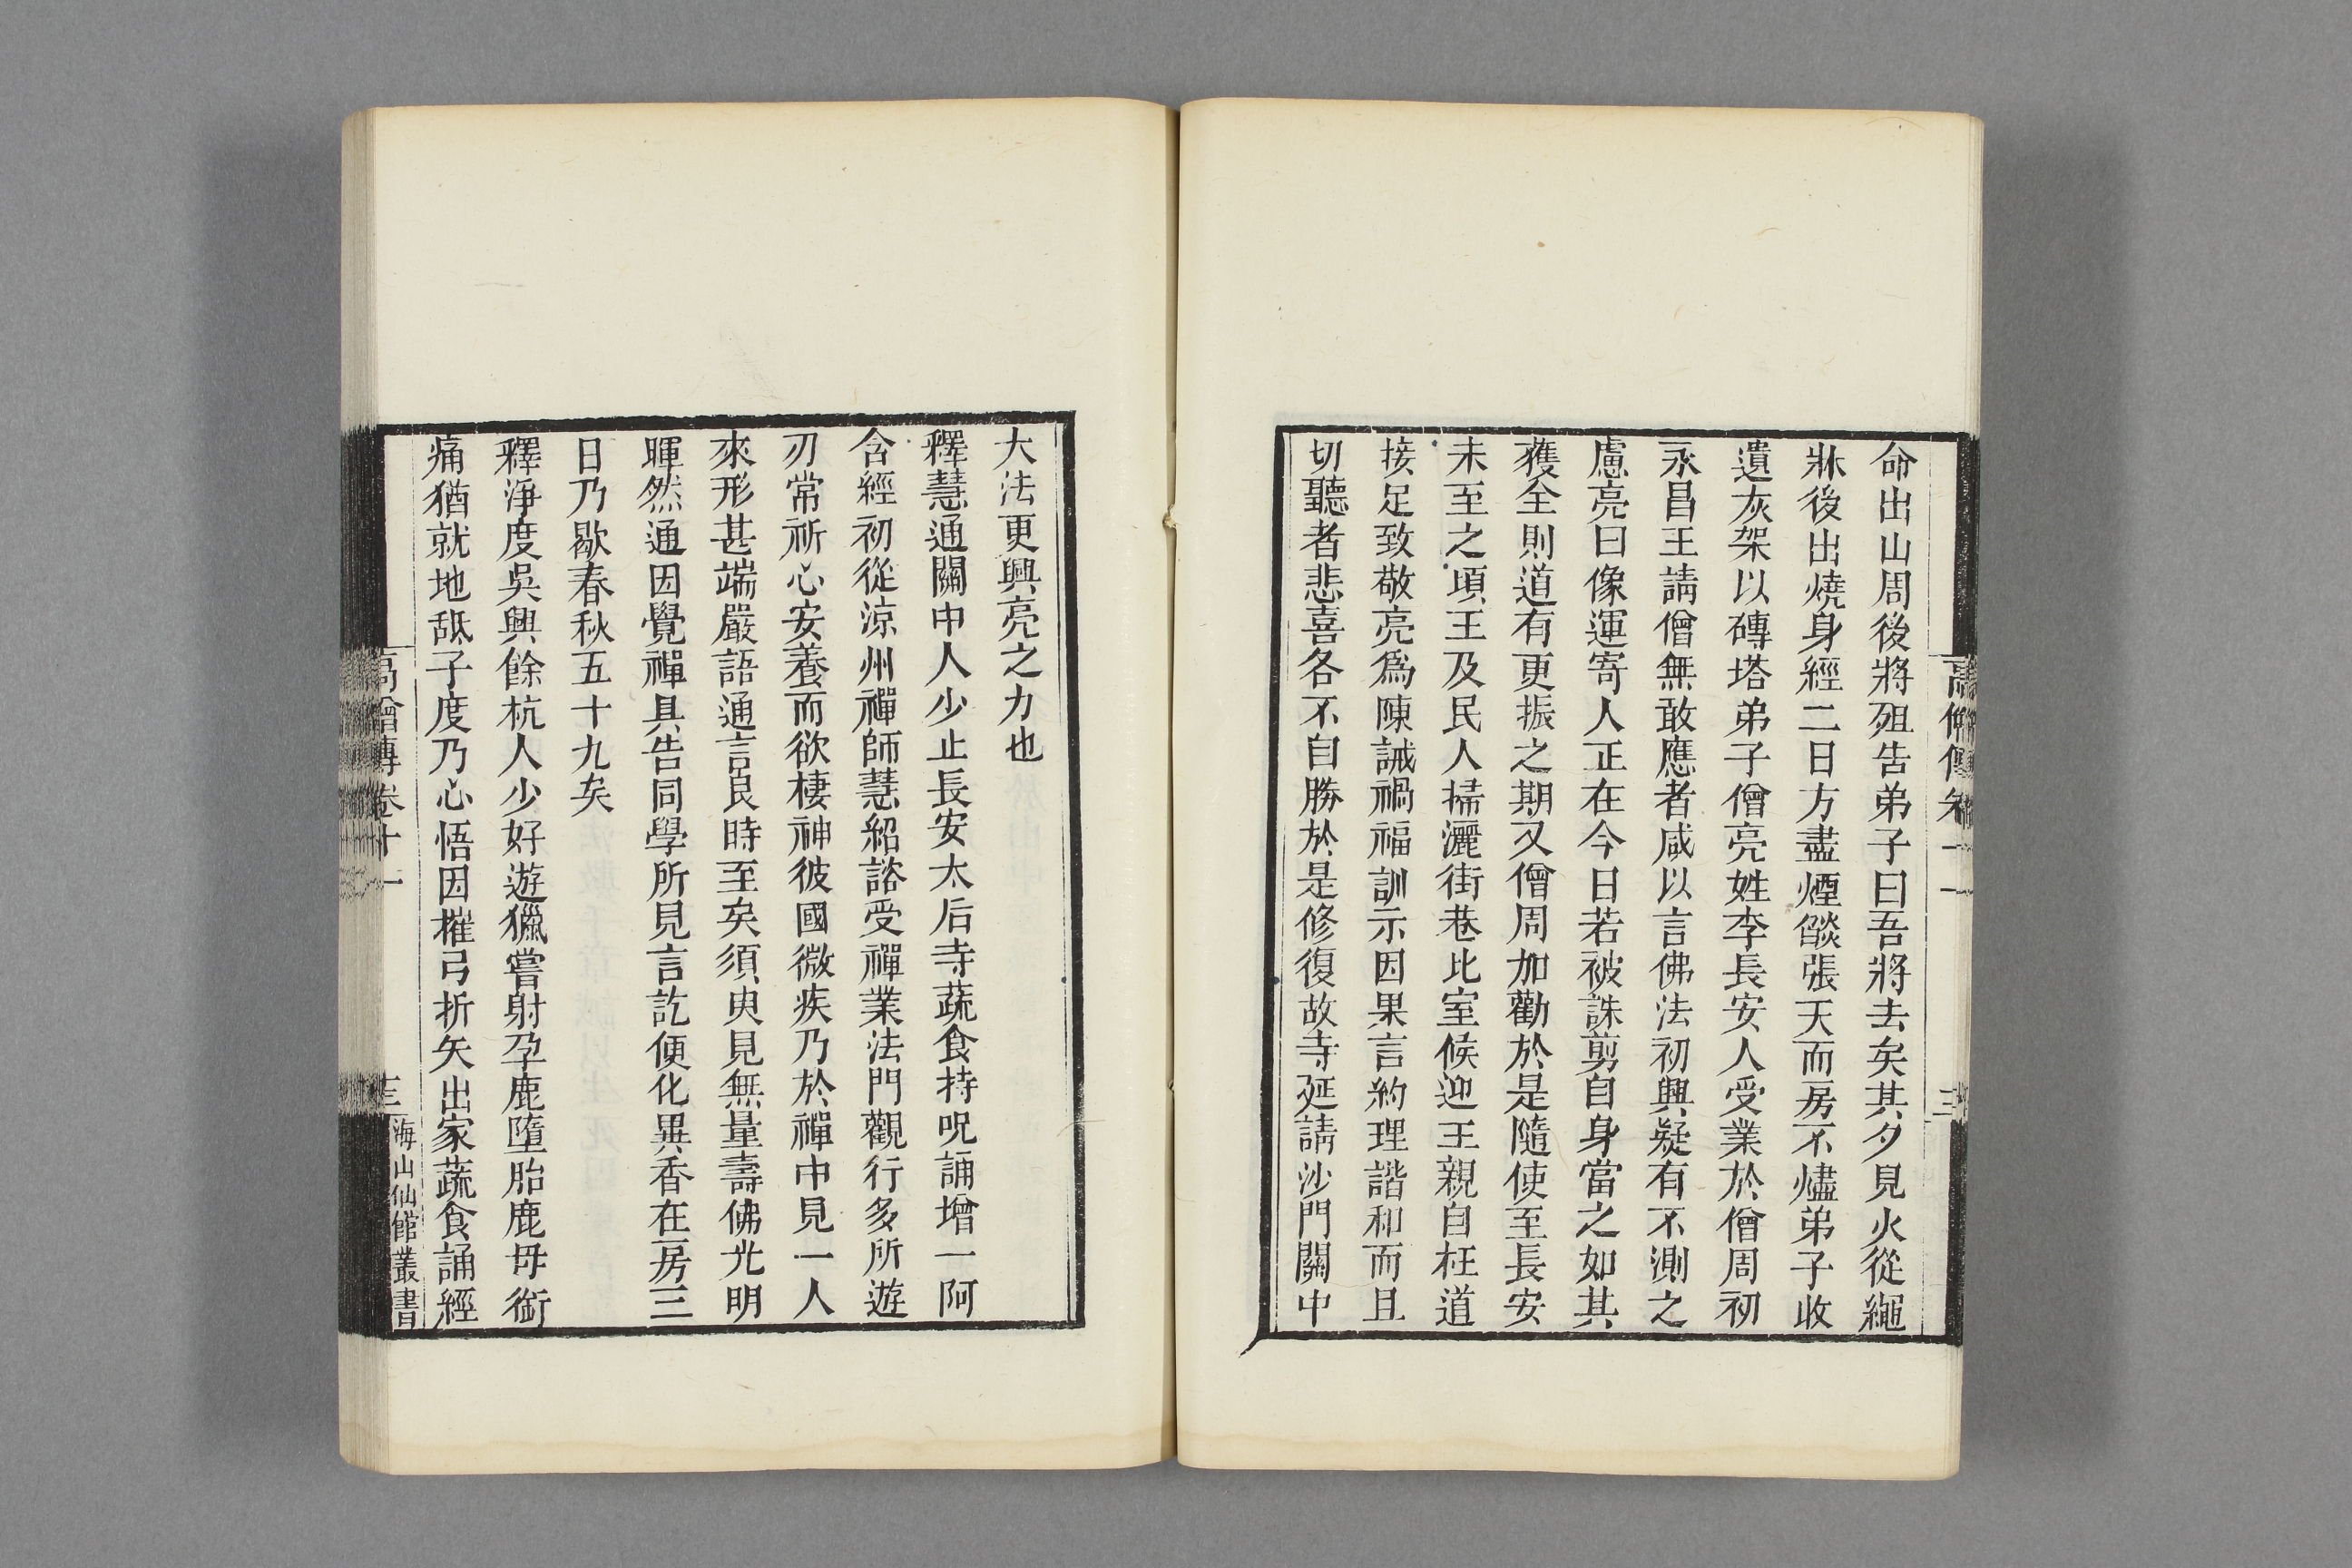 命出山周後將殂告弟子曰吾將去矣其夕見火從繩
牀後出燒身經二日方盡煙燄張天而房不燼弟子收
遺灰架以磚塔弟子僧亮姓李長安人受業於僧周初
永昌王請僧無敢應者咸以言佛法初興疑有不測之
慮亮曰像運寄人正在今日若被誅剪自身當之如其
獲全則道有更振之期又僧周加勸於是隨使至長安
未至之頃王及民人掃灑街巷比室候迎王親自枉道
接足致敬亮爲陳誡禍福訓示因果言約理諧和而且
切聽者悲喜各不自勝於是修復故寺延請沙門關中
大法更興亮之力也
釋慧通關中人少止長安太后寺蔬食持呪誦增一阿
含經初從涼州禪師慧紹諮受禪業法門觀行多所遊
刃常祈心安養而欲棲神彼國微疾乃於禪中見一人
來形甚端嚴語通言良時至矣須臾見無量壽佛光明
暉然通因覺禪具告同學所見言訖便化異香在房三
日乃歇春秋五十九矣
釋淨度吳興餘杭人少好遊獵嘗射孕鹿墮胎鹿母銜
痛猶就地舐子度乃心悟因摧弓折矢出家蔬食誦經
高僧傳卷十一
三
海山仙館叢書